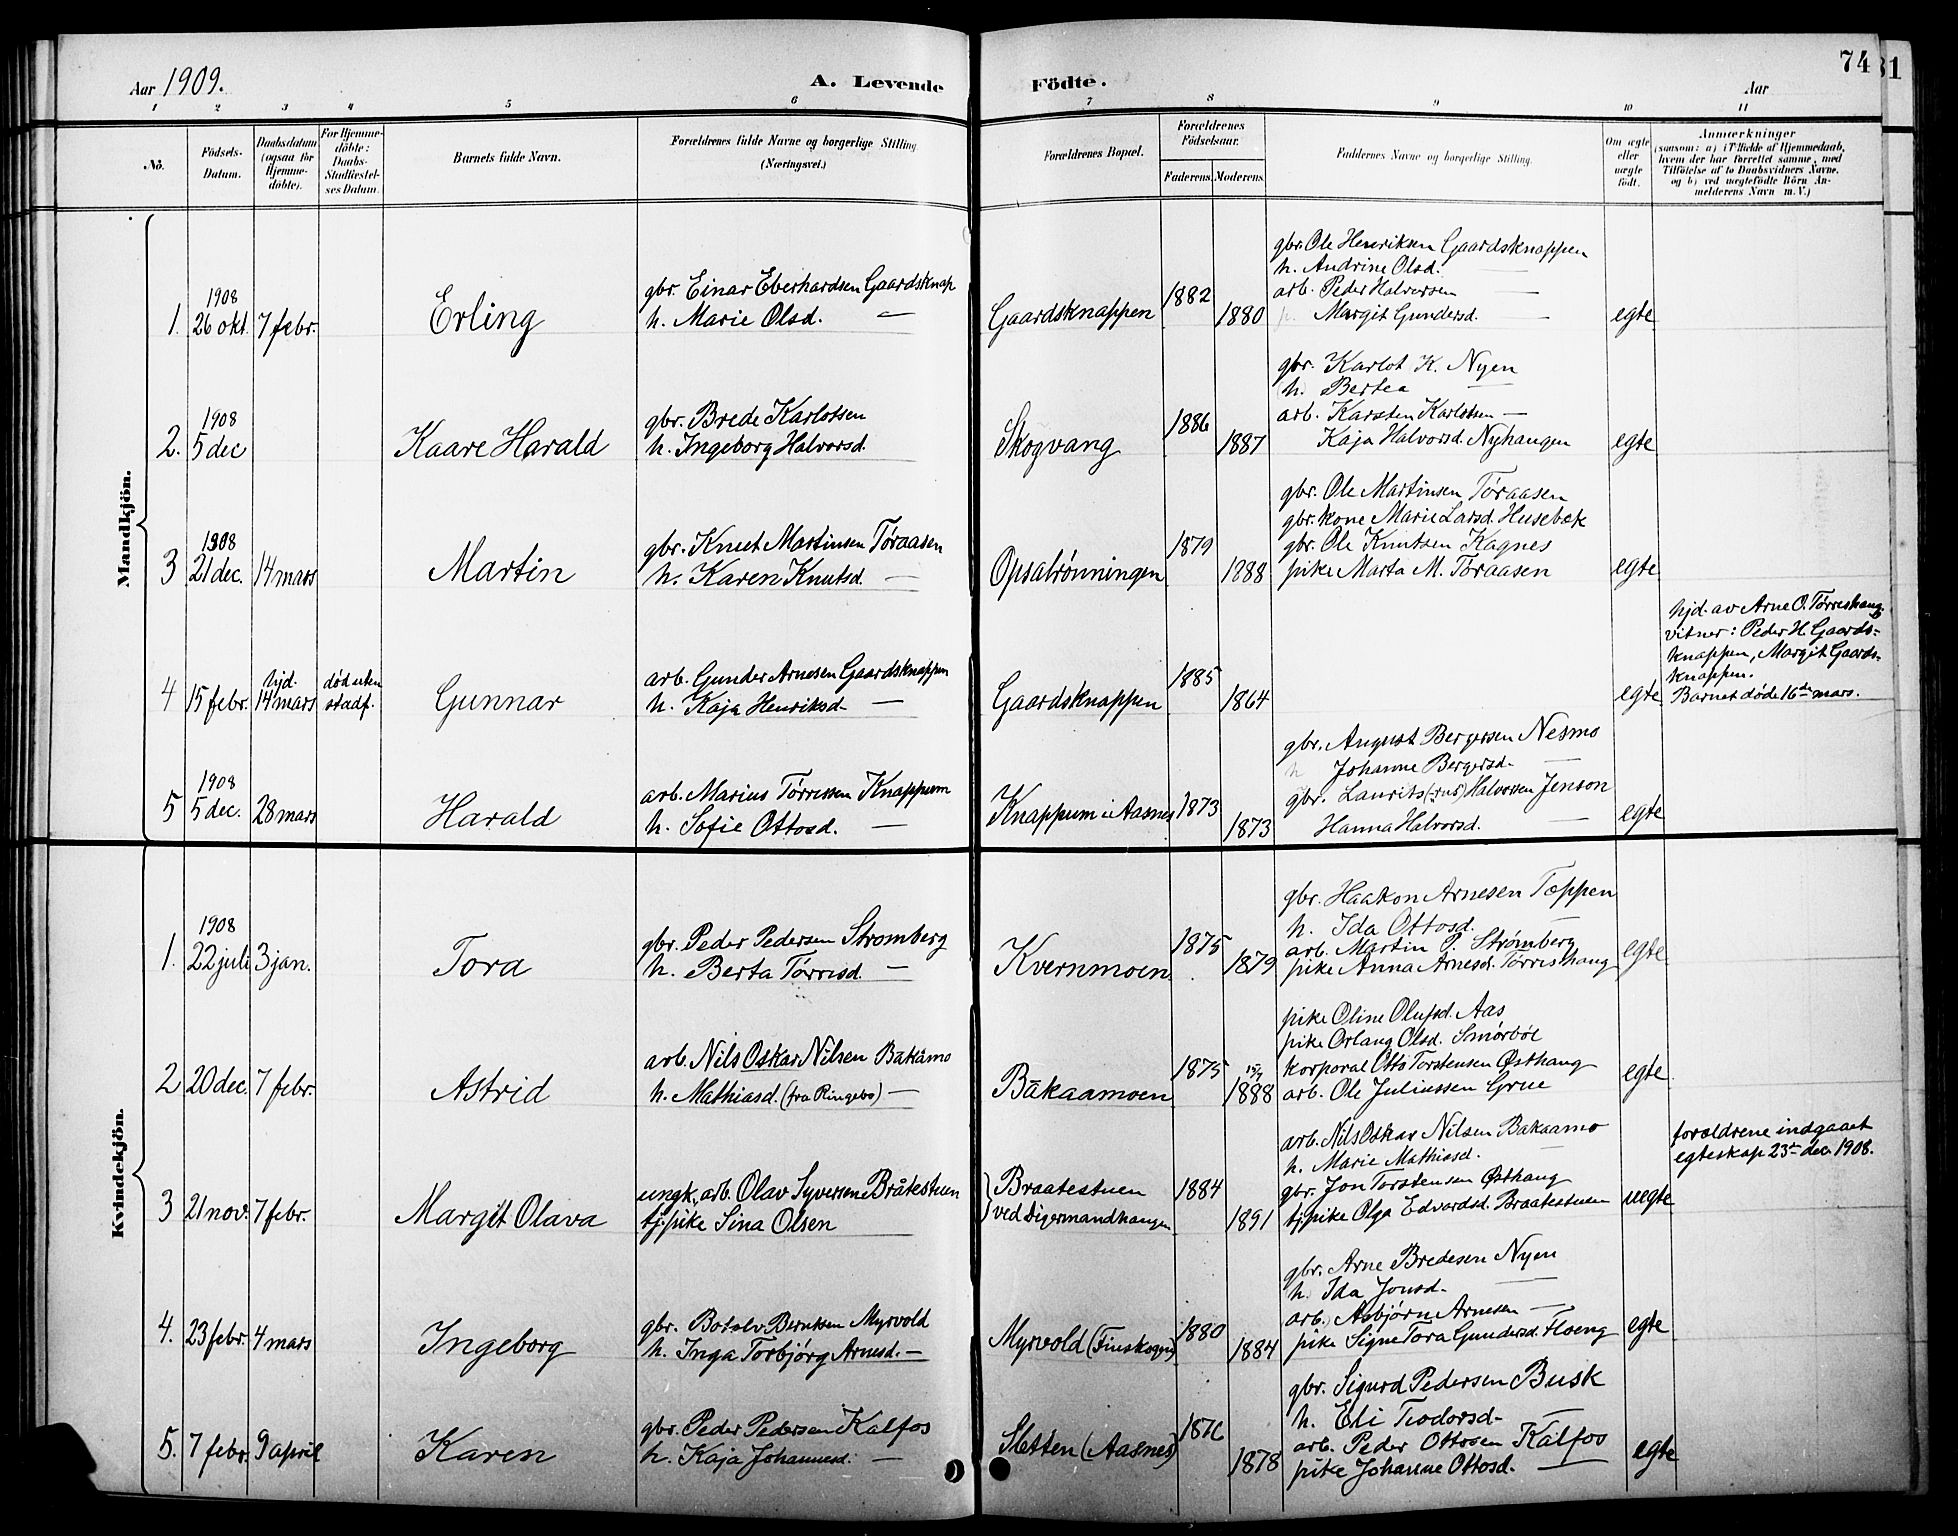 Aar 1909.
A. Levende Födte.
Aar
74
81
1 2 3 4 5 6 7 8 9 10 11
No.
Födsels-
Datum.
Daabsdatum
(ogsaa for
Hjemme-
döbte).
For Hjemme-
döbte:
Daabs-
Stadfæstel-
ses Datum.
Barnets fulde Navn.
Forældrenes fulde Navne og borgerlige Stilling
(Næringsvei.)
Forældrenes Bopæl.
Forældrenes
Födselsaar.
Faderens. Moderens.
Faddernes Navne og borgerlige Stilling.
Om ægte
eller
uægte
født.
Anmærkninger
(saasom: a) i Tilfælde af Hjemmedaab,
hvem der har forrettet samme, med
Tilföielse af to Daabsvidners Navne,
og b) ved uægtefödte Börn An-
melderens Navn m. V.)
Mandkjön.
1. 1908 26 okt. 7 febr. Erling
gbr. Einar Eberhardsen Gaardsknap
h. Marie Olsd. —
Gaardsknappen 1882 1880
gbr. Ole Henriksen Gaardsknappen
h. Andrine Olsd. —
arb. Peder Halvorsen —
Margit Gundersd. —
egte
2. 1908 5 dec Kaare Harald
gbr. Brede Karlotsen
h. Ingeborg Halvorsd.
Skogvang 1886 1887
gbr. Karlot K. Nyen
h. Bertea —
arb. Karsten Karlotsen —
Kaja Halvorsd. Nyhaugen
egte
3 1908 21 dec. 14 mars Martin
gbr. Knut Martinsen Tøraasen
h. Karen Knutsd. —
Opsalrønningen 1879 1888
gbr. Ole Martinsen Tøraasen
gbr. kone Marie Larsd. Husebæk
gbr. Ole Knutsen Kagnes
pike Marta M. Tøraasen
egte
4 15 febr. hjd. 14 mars død uten stadf. Gunnar
arb. Gunder Arnesen Gaardsknappen
h. Kaja Henriksd. —
Gaardsknappen 1885 1864
egte
hjd. av Arne O. Tørrishaug.
vitner: Peder H. Gaards-
knappen, Margit Gaards-
knappen.
Barnet døde 16de mars.
5 1908 5 dec. 28 mars Harald
arb. Marius Tørrissen Knappum
h. Sofie Ottosd. —
Knappum i Aasnes 1873 1873
gbr. August Bergersen Nesmo
h Johanne Bergersd. —
gbr. Laurits Halvorsen Jenson
Hanna Halvorsd. —
egte
Kvindekjön.
1. 1908 22 juli 3 jan. Tora
gbr. Peder Pedersen Strømberg
h. Berta Tørrisd. —
Kvernmoen 1875 1879
gbr. Haakon Arnesen Tøppen
h. Ida Ottosd. —
arb. Martin P. Strømberg
pike Anna Arnesd. Tørrishaug
egte
2 20 dec. 7 febr. Astrid
arb. Nils Oskar Nilsen Bakamo
h. Mathiasd. (fra Ringebo) —
Bakaamoen 1875 1888
pike Oline Olufsd. Aas
pike Orlaug Olsd. Smørbøl
korporal Otto Torstensen Østhaug
arb. Ole Juliussen Grue
egte
3 21 nov. 7 febr. Margit Olava
ungk. arb. Olav Syversen Bråtestuen
tj. pike Sina Olsen
Braatestuen
ved Digermandhaugen
1884 1891
arb. Nils Oskar Nilsen Bakaamo
h. Marie Mathiasd. —
gbr. Jon Torstensen Østhaug
tj. pike Olga Edvardsd. Braatestuen
uegte
forældrene indgaaet
egteskap 23de dec. 1908.
4. 23 febr. 4 mars Ingeborg
gbr. Botolv Berntsen Myrvold
h. Inga Torbjørg Arnesd. —
Myrvold (Finskogen) 1880 1884
gbr. Arne Bredesen Nyen
h. Ida Jonsd. —
arb. Asbjørn Arnesen —
pike Signe Tora Gundersd. Floeng
egte
5. 7 febr. 9 april Karen
gbr. Peder Pedersen Kalfos
h. Kaja Johannesd. —
Sletten (Aasnes) 1876 1878
gbr. Sigurd Pedersen Busk
h. Eli Teodorsd. —
arb. Peder Ottosen Kalfos
pike Johanne Ottosd. —
egte